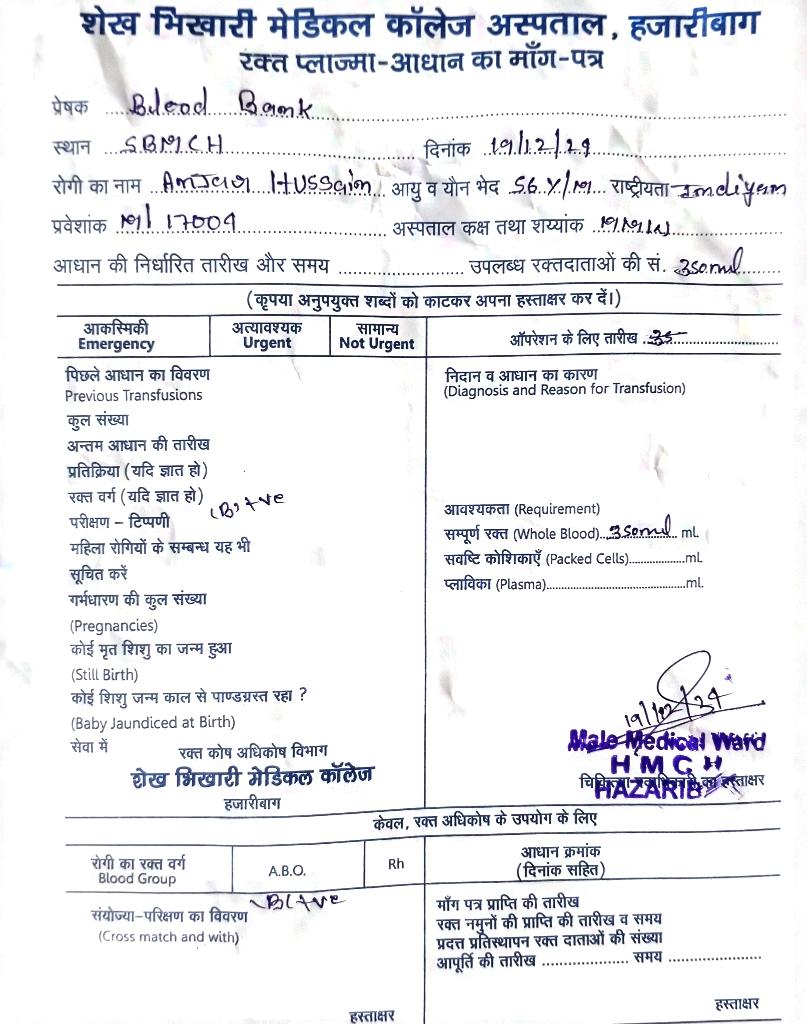 शेख भिखारी मेडिकल कॉलेज अस्पताल, हजारीबाग
रक्त प्लाज्मा-आधान का माँग-पत्र
प्रेषक Blood Bank
स्थान SBMCH दिनांक 19/12/24
रोगी का नाम Hussain आयु व यौन भेद 56 Y/M राष्ट्रीयता Indiyan
प्रवेशांक M/ 17009 अस्पताल कक्ष तथा शय्यांक MMW
आधान की निर्धारित तारीख और समय उपलब्ध रक्तदाताओं की सं. 350ml
(कृपया अनुपयुक्त शब्दों को काटकर अपना हस्ताक्षर कर दें।)
आकस्मिकी अत्यावश्यक सामान्य
Emergency Urgent Not Urgent ऑपरेशन के लिए तारीख
पिछले आधान का विवरण निदान व आधान का कारण
Previous Transfusions (Diagnosis and Reason for Transfusion)
कुल संख्या
अन्तम आधान की तारीख
प्रतिक्रिया (यदि ज्ञात हो)
रक्त वर्ग (यदि ज्ञात हो) (B) +ve
आवश्यकता (Requirement)
परीक्षण – टिप्पणी सम्पूर्ण रक्त (Whole Blood) 350ml mL
महिला रोगियों के सम्बन्ध यह भी सवष्टि कोशिकाएँ (Packed Cells) mL
सूचित करें प्लाविका (Plasma) mL
गर्भधारण की कुल संख्या
(Pregnancies)
कोई मृत शिशु का जन्म हुआ
(Still Birth)
कोई शिशु जन्म काल से पाण्डग्रस्त रहा ?
(Baby Jaundiced at Birth) 19/12/24
सेवा में रक्त कोष अधिकोष विभाग Male Medical Ward
शेख भिखारी मेडिकल कॉलेज H M C H
हजारीबाग HAZARIB हस्ताक्षर
केवल, रक्त अधिकोष के उपयोग के लिए
रोगी का रक्त वर्ग A.B.O. Rh आधान क्रमांक
Blood Group (दिनांक सहित)
B(+ve
संयोज्या-परिक्षण का विवरण माँग पत्र प्राप्ति की तारीख
(Cross match and with) रक्त नमुनों की प्राप्ति की तारीख व समय
प्रदत्त प्रतिस्थापन रक्त दाताओं की संख्या
आपूर्ति की तारीख समय
हस्ताक्षर हस्ताक्षर